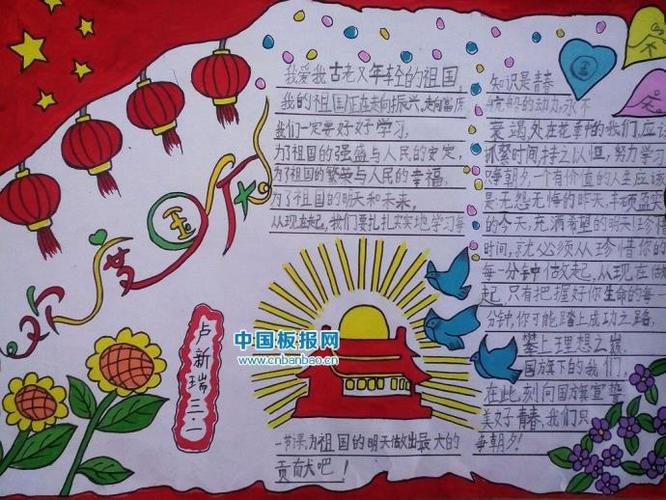 欢度国庆
我爱我古老又年轻的祖国。
我的祖国正在走向振兴,走向富庶
我们一定要好好学习,
为了祖国的强盛与人民的安定,
为了祖国的繁荣与人民的幸福。
为了祖国的明天和未来,
从现在起,我们要扎扎实实地学习每
一节课,为祖国的明天做出最大的
贡献吧!
国
庆
知识是青春
的动力,永不
衰竭,处在花季的我们,应
抓紧时间,持之以恒,努力学习
争朝夕。一个有价值的人生应该
是:无怨无悔的昨天,丰硕
的今天,充满希望的明天!珍惜
时间,就必须从珍惜你的
每一分钟做起,从现在做
起,只有把握好你生命的每一
分钟,你可能踏上成功之路,
攀上理想之巅。
国旗下的我们,
在此刻向国旗宣誓
美好青春,我们只
争朝夕!
卢新瑞三.
中国板报网
www.cnbanbao.cn